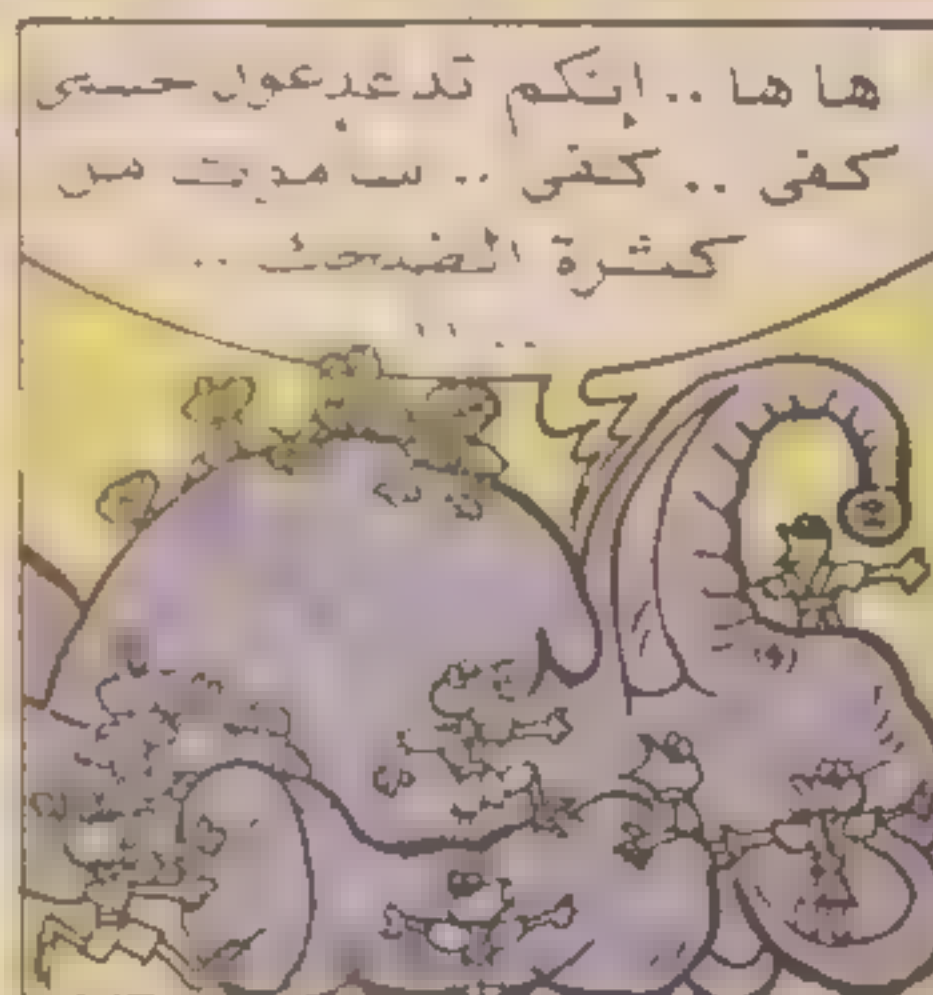 ها ها .. إنكم تدغدغوني حسبي
كفى .. كفى .. سأموت من
كثرة الضحك ..